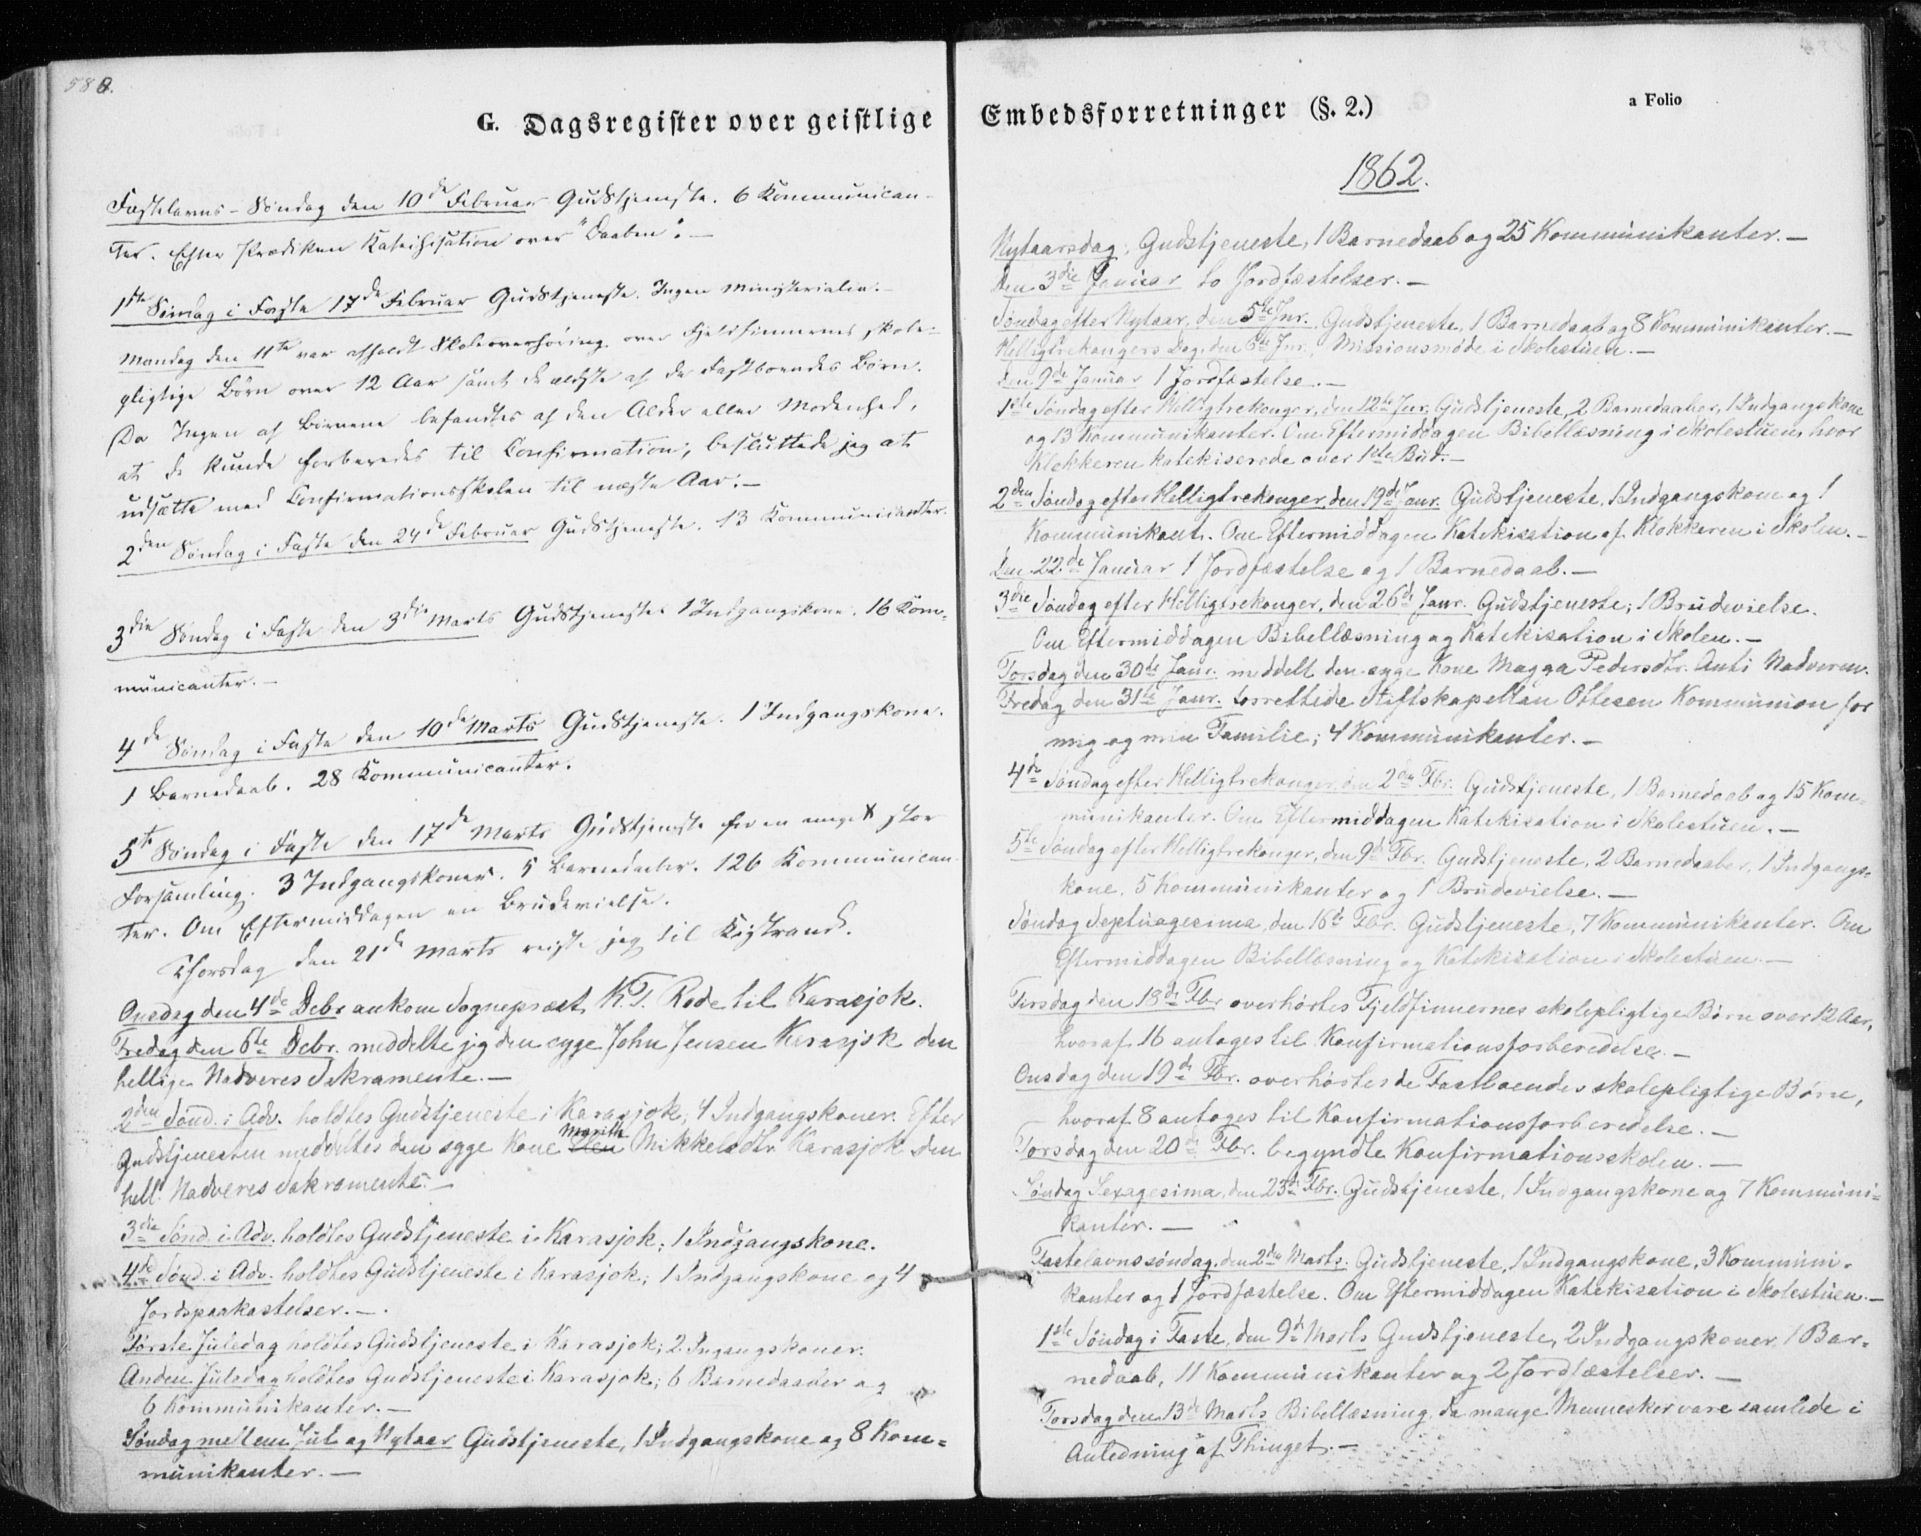 588.
G. Dagsregister over geistlige
Fastelavns-Søndag den 10de Februar Gudstjeneste. 6 Kommunican-
ter. Efter Prædiken Katechisation over "Daaben". —
1ste Søndag i Faste 17de Februar Gudstjeneste. Ingen Ministerialia. —
Mandag den 11te var afholdt Skoleoverhøring over Fjeldfinnernes skole-
pligtige Børn over 12 Aar samt de ældste af de Fastboendes Børn.
Da Ingen af Børnene befandtes af den Alder eller Modenhed,
at de kunde forberedes til Confirmation, besluttede jeg at
udsætte med Confirmationsskolen til næste Aar. —
2den Søndag i Faste den 24de Februar Gudstjeneste. 13 Kommunicanter.
3die Søndag i Faste den 3die Marts Gudstjeneste 1 Indgangskone. 16 Kom-
municanter. —
4de Søndag i Faste den 10de Marts Gudstjeneste. 1 Indgangskone.
1 Barnedaab. 28 Kommunicanter.
5te Søndag i Faste den 17de Marts Gudstjeneste for en meget stor
Forsamling. 3 Indgangskoner. 5 Barnedaaber. 126 Kommunican-
ter. Om Eftermiddagen en Brudevielse.
Thorsdag den 21de Marts reiste jeg til Kistrand.
Onsdag den 4de Debr ankom Sognepræst K. F. Rode til Karasjok.
Fredag den 6te Debr. meddelte jeg den syge John Jensen Karasjok den
hellige Nadveres Sakramente. —
2den Sønd. i Adv. holdtes Gudstjeneste i Karasjok; 4 Indgangskoner. Efter
Gudstjenesten meddeltes den syge Kone Marith Mikkelsdtr Karasjok den
hell. Nadveres Sakramente. —
3die Sønd. i Adv. holdtes Gudstjeneste i Karasjok; 1 Indgangskone.
4de Sønd. i Adv. holdtes Gudstjeneste i Karasjok; 1 Indgangskone og 4
Jordspaakastelser. —
Første Juledag holdtes Gudstjeneste i Karasjok; 2 Ingangskoner.
Anden Juledag holdtes Gudstjeneste i Karasjok; 6 Barnedaaber og
6 Kommunikanter. —
Søndag mellem Jul og Nytaar Gudstjeneste, 1 Indgangskone og 8 Kom-
munikanter. —
Embedsforretninger (§. 2.)
a Folio
1862.
Nytaarsdag, Gudstjeneste, 1 Barnedaab og 25 Kommunikanter. —
Den 3die Januar to Jordfæstelser. —
Søndag efter Nytaar, den 5te Jnr. Gudstjeneste, 1 Barnedaab og 8 Kommunikanter. —
Helligtrekongers Dag, den 6te Jnr., Missionsmøde i Skolestuen. —
Den 9de Januar 1 Jordfæstelse. —
1ste Søndag efter Helligtrekonger, den 12te Jnr. Gudstjeneste, 2 Barnedaaber, 1 Indgangskone
og 13 Kommunikanter. Om Eftermiddagen Bibellæsning i Skolestuen, hvor
Klokkeren katekiserede over 1ste Bud. —
2den Søndag efter Helligtrekonger, den 19de Janr. Gudstjeneste, 1 Indgangskone og 1
Kommunikant. Om Eftermiddagen Katekisation af Klokkeren i Skolen. —
Den 22de Januar 1 Jordfæstelse og 1 Barnedaab. —
3die Søndag efter Helligtrekonger, den 26de Janr. Gudstjeneste; 1 Brudevielse.
Om Eftermiddagen Bibellæsning og Katekisation i Skolen. —
Torsdag den 30te Janr. meddelt den syge Kone Magga Pedersdtr. Anti Nadveren.
Fredag den 31te Janr. forrettede Stiftskapellan Ottesen Kommunion for
mig og min Familie; 4 Kommunikanter. —
4de Søndag efter Helligtrekonger, den 2den Fbr. Gudstjeneste, 1 Barnedaab og 15 Kom-
munikanter. Om Eftermiddagen Katekisation i Skolestuen. —
5te Søndag efter Helligtrekonger, den 9de Fbr. Gudstjeneste, 2 Barnedaaber, 1 Indgangs-
kone, 5 Kommunikanter og 1 Brudevielse. —
Søndag Septuagesima, den 16de Fbr. Gudstjeneste, 7 Kommunikanter. Om
Eftermiddagen Bibellæsning og Katekisation i Skolestuen. —
Tirsdag den 18de Fbr overhørtes Fjeldfinnernes skolepligtige Børn over 12 Aar,
hvoraf 16 antoges til Konfirmationsforberedelse. —
Onsdag den 19de Fbr. overhørtes de Fastboendes skolepligtige Børn,
hvoraf 8 antoges til Konfirmationsforberedelse. —
Torsdag den 20de Fbr. begyndte Konfirmationsskolen. —
Søndag Sexagesima, den 23de Fbr. Gudstjeneste, 1 Indgangskone og 7 Kommuni-
kanter. —
Fastelavnssøndag, den 2den Marts. Gudstjeneste, 1 Indgangskone, 3 Kommuni-
kanter og 1 Jordfæstelse. Om Eftermiddagen Katekisation i Skolestuen. —
1ste Søndag i Faste, den 9de Marts Gudstjeneste, 2 Indgangskoner, 1 Bar-
nedaab, 11 Kommunikanter og 2 Jordfæstelser. —
Torsdag den 13de Marts Bibellæsning, da mange Mennesker vare samlede i
Anledning af Thinget. —